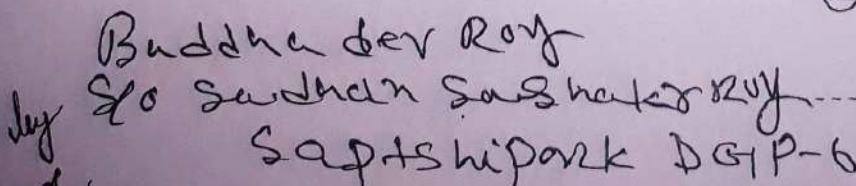 Buddha dev Roy
by S/o Sadhan Sashakar Roy....
Saptshipark DGP-6